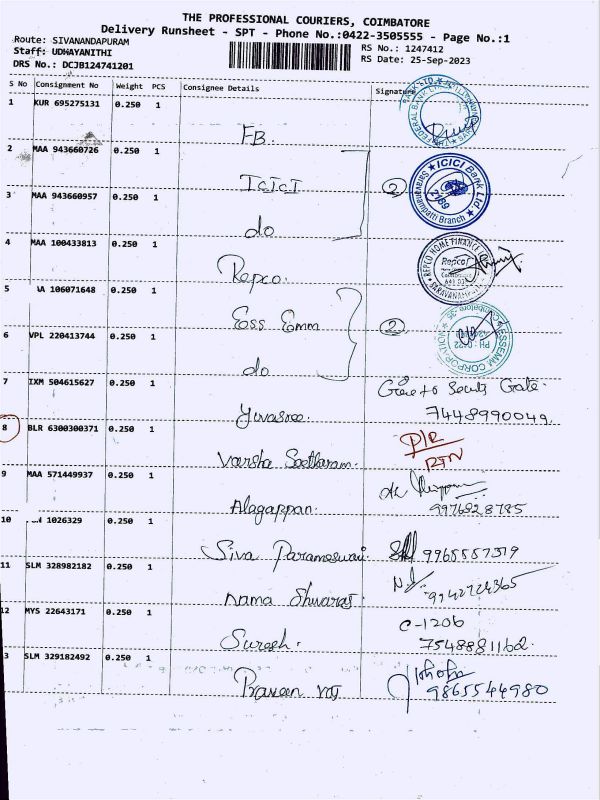 THE PROFESSIONAL COURIERS, COIMBATORE
Delivery Runsheet - SPT - Phone No.:0422-3505555 - Page No.:1
Route: SIVANANDAPURAM
RS No.: 1247412
Staff: UDHAYANITHI
RS Date: 25-Sep-2023
DRS No.: DCJB124741201
S No Consignment No Weight PCS Consignee Details Signature
1 KUR 695275131 0.250 1
FB.
2 MAA 943660726 0.250 1
ICICI
2 ICICI Bank Ltd.
3 MAA 943660957 0.250 1
do
4 MAA 100433813 0.250 1
Repco.
REPCO HOME FINANCE
Repco
5 A 106071648 0.250 1
Ess Emm
2
6 VPL 220413744 0.250 1
do
ESSEMM CORPORATION
7 IXM 504615627 0.250 1
Yuvasree.
Gate.
7448990049
8 BLR 6300300371 0.250 1
Varsha Seetharam.
D/R
RTN
9 MAA 571449937 0.250 1
Alagappan.
9976928785
10 1026329 0.250 1
Siva Parameswari.
9965557519
11 SLM 328982182 0.250 1
Nama Shivaraj.
9942724365
12 MYS 22643171 0.250 1
Suresh.
C-1206
7548881162.
3 SLM 329182492 0.250 1
Praveen raj
9865544980